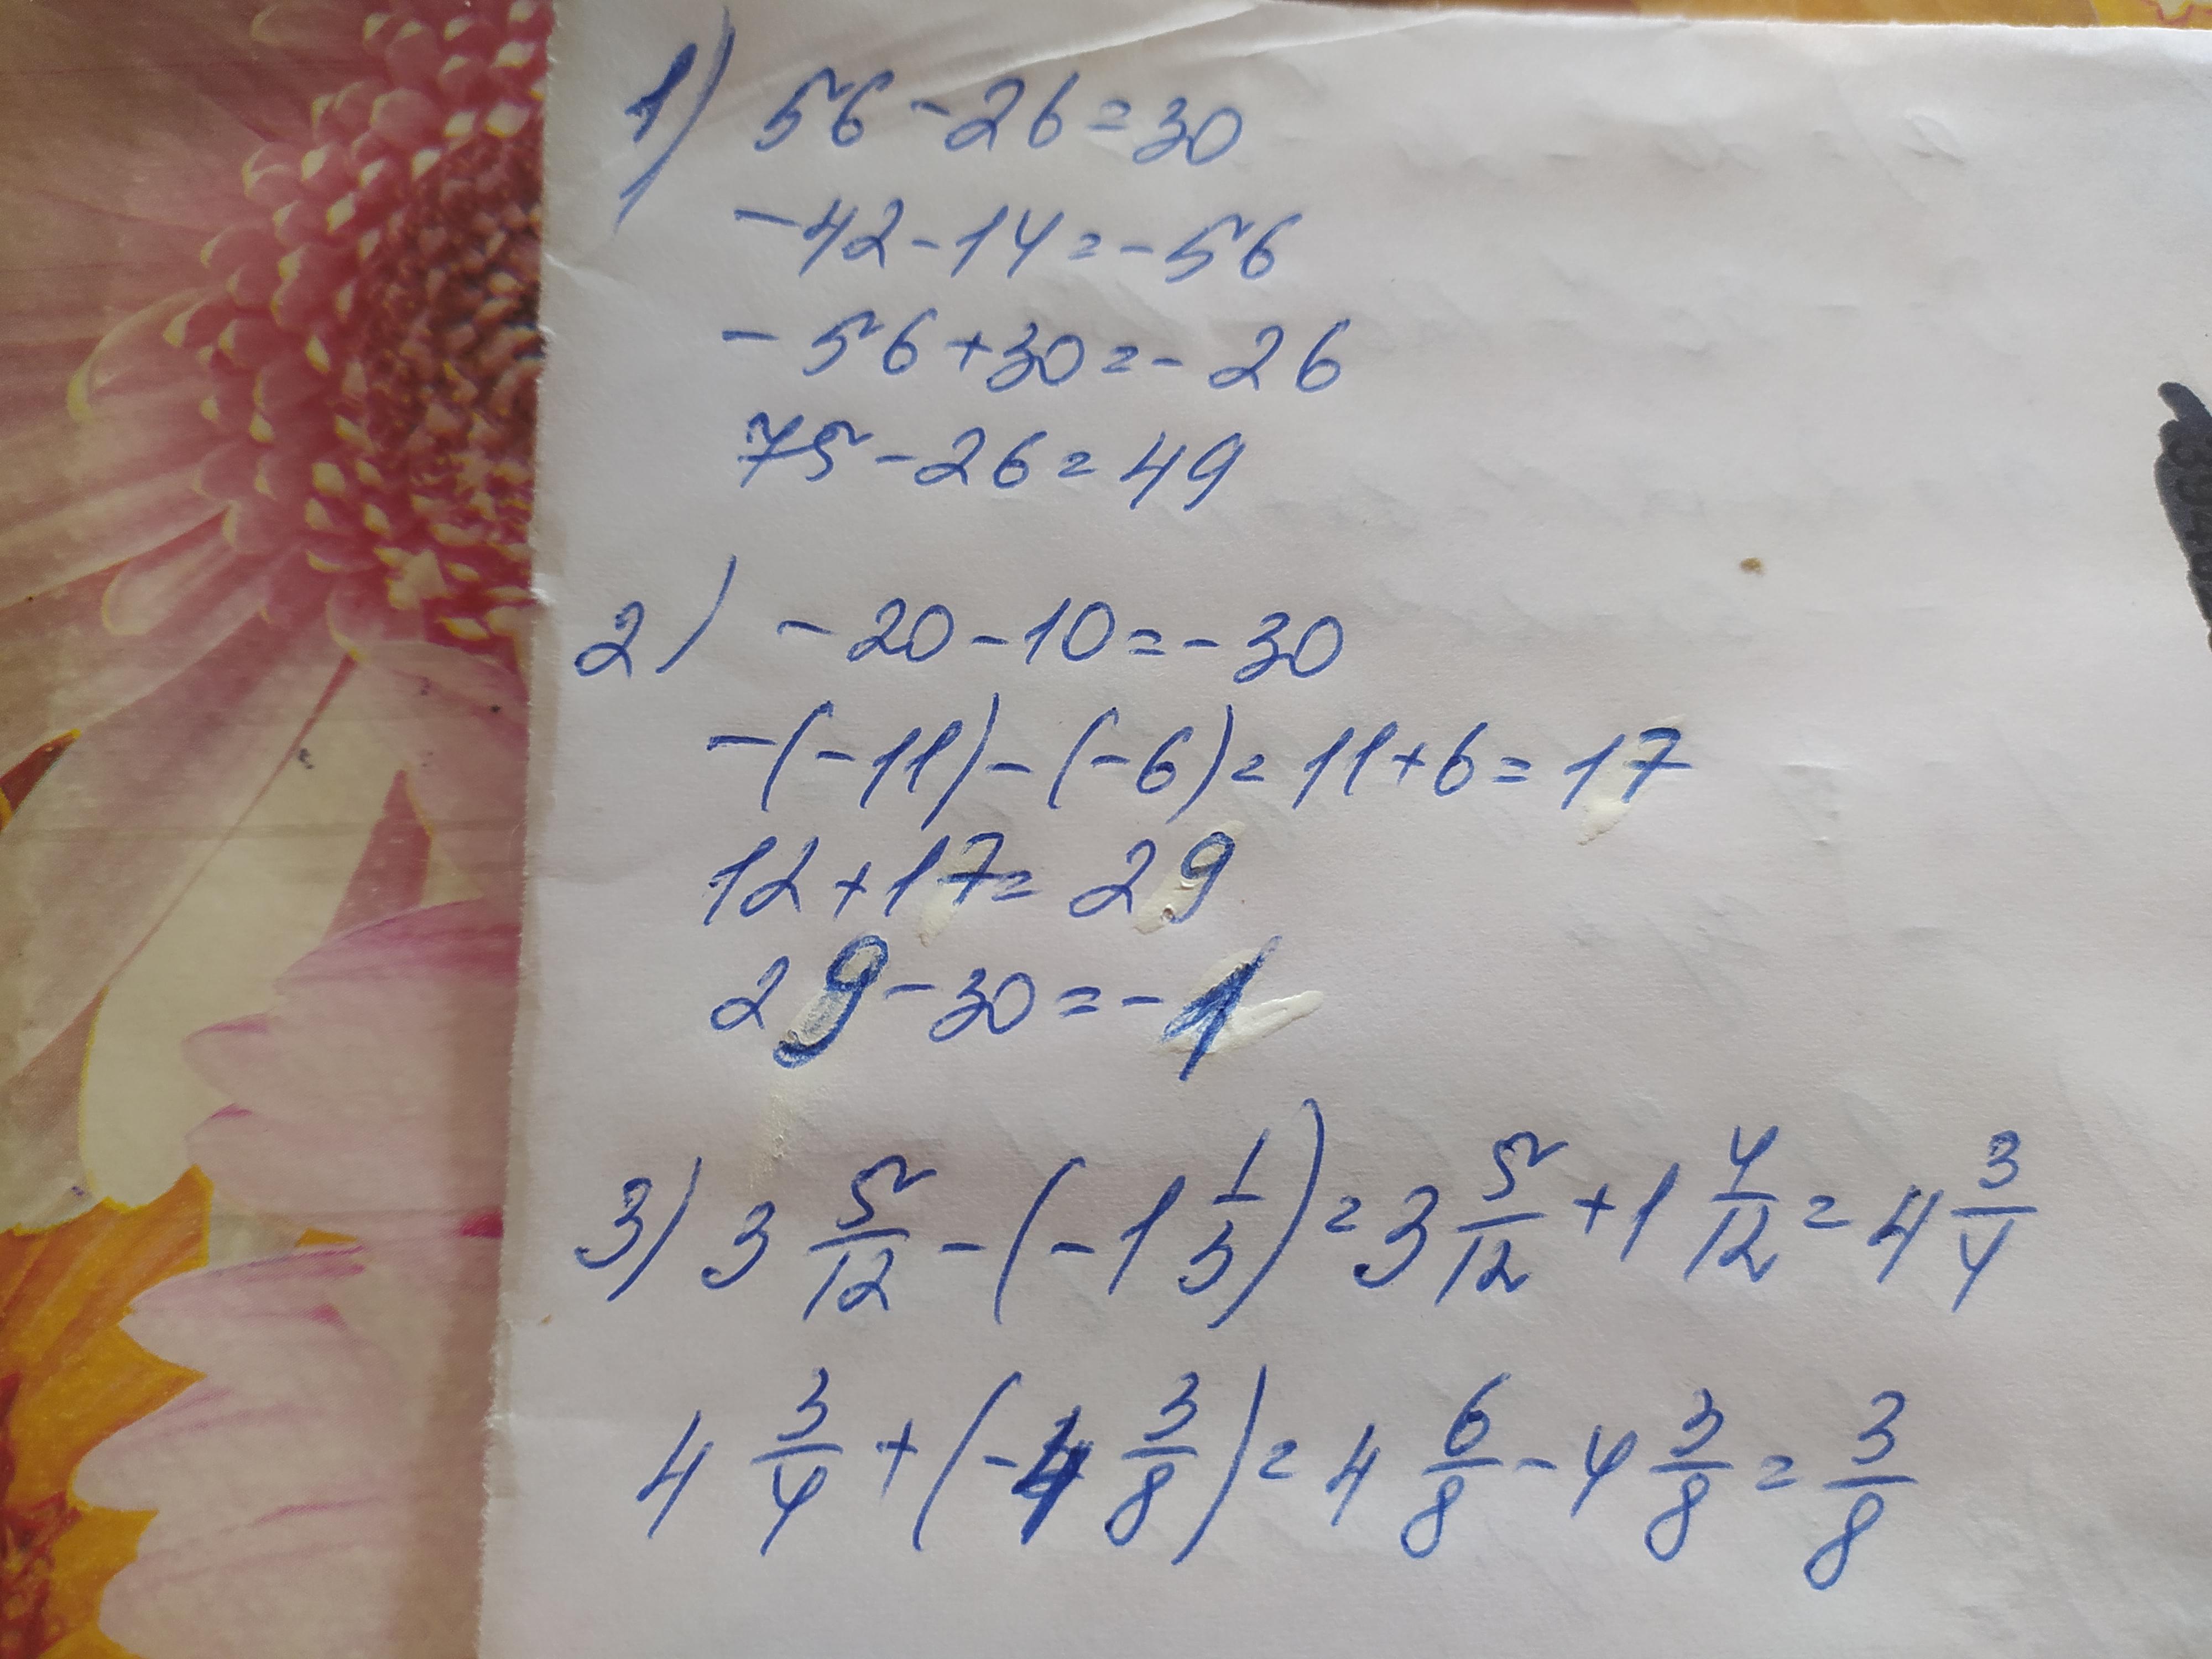 1) 56 - 26 = 30
- 42 - 14 = - 56
- 56 + 30 = - 26
75 - 26 = 49
2) - 20 - 10 = - 30
- (- 11) - (- 6) = 11 + 6 = 17
12 + 17 = 29
29 - 30 = - 1
3) 3 5/12 - (- 1 1/3) = 3 5/12 + 1 4/12 = 4 3/4
4 3/4 + (- 4 3/8) = 4 6/8 - 4 3/8 = 3/8